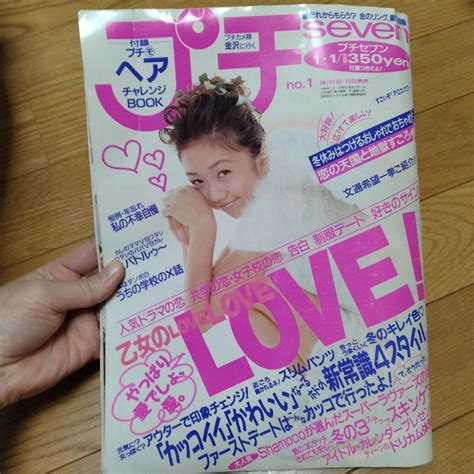 付録
プチモ
ヘア
チャレンジ
BOOK
プチカメ隊
金沢に行く
プチ
seven
プチセブン
1・1/15
350yen
付録つきだよ!
no.1
毎月1日・15日発売
大好評!
広げて楽しい!
冬休みはつけるおしゃれでおちゃめ
恋の天国と地獄すごろく
文通希望一挙ご紹介!
私の不幸自慢
バトルゥ〜
うちの学校の㊙話
人気ドラマの恋 共学の恋・女子校の恋 告白 制服デート 好きのサイン
乙女のLOVELOVE
LOVE!
やっぱり
愛でしょ
愛。
アウターで印象チェンジ!
スリムパンツ
冬のキレイ色♡
「カッコイイ」「かわいい」
新常識4スタイル
ファーストデートは
カッコで行ったよ!
大人気
Shampooが選んだスーパーラヴァーズの
冬の3
スキンケア
アイドル・カレンダープレゼント
ドリカム